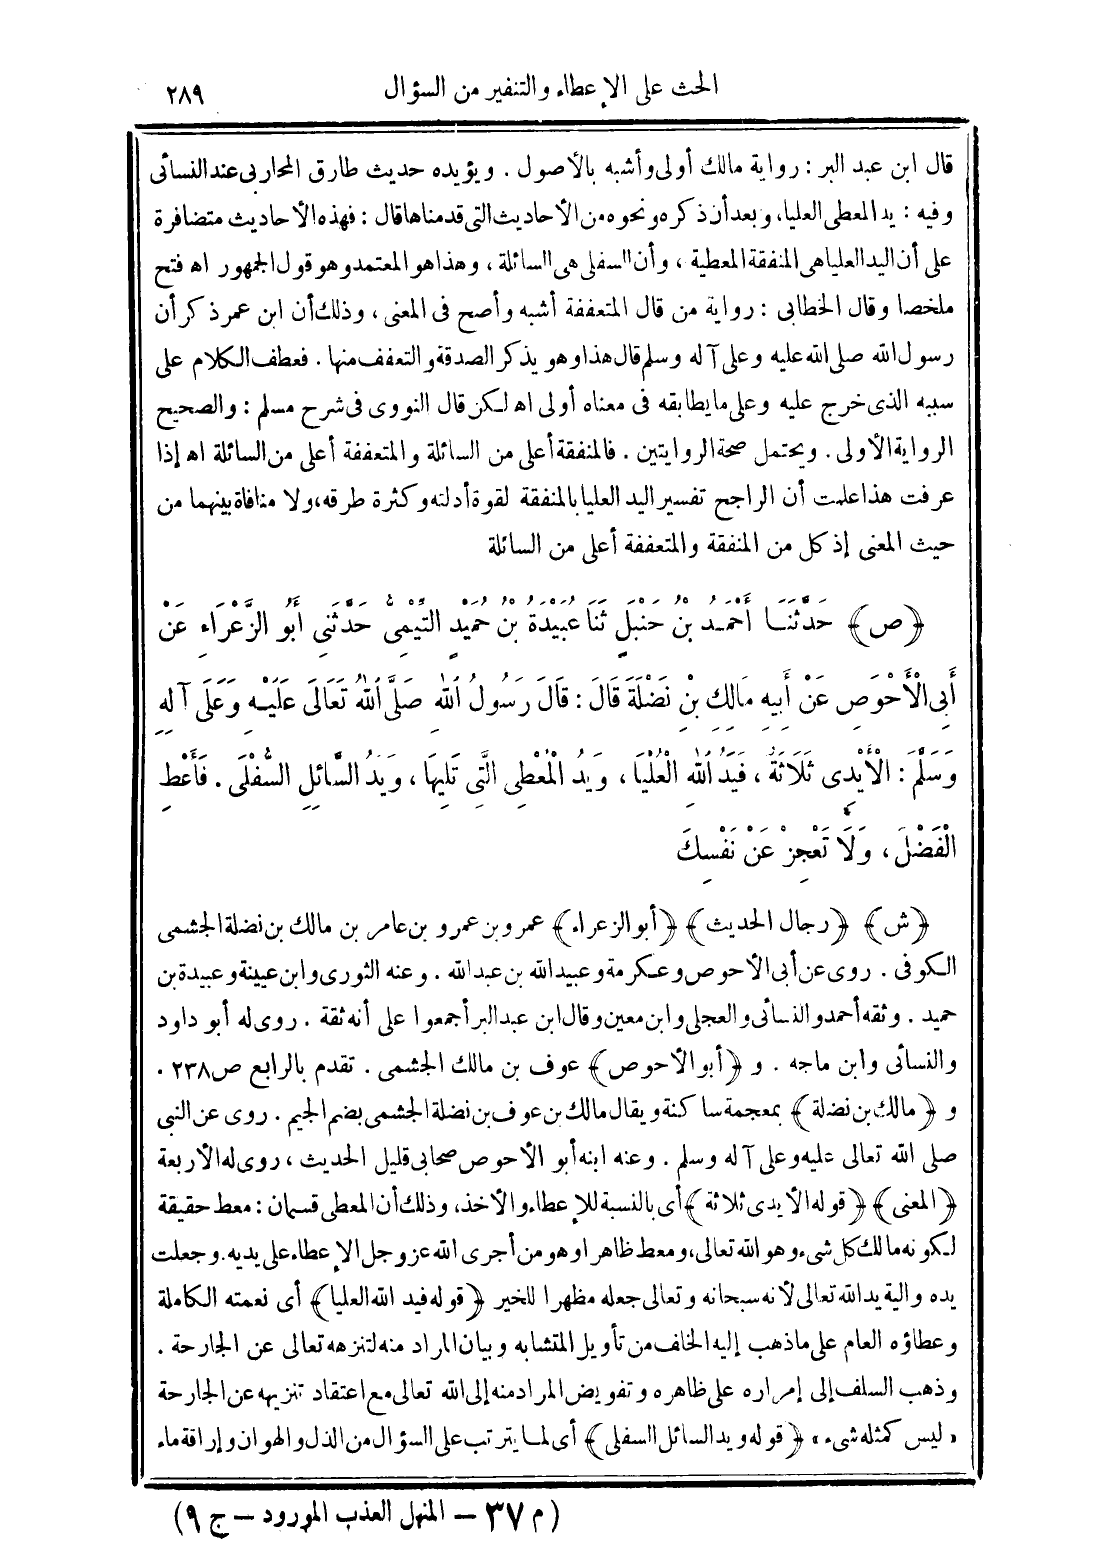 الحث على الإعطاء والتنفير من السؤال ٢٨٩
قال ابن عبد البر : رواية مالك أولى وأشبه بالأصول . ويؤيده حديث طارق المحاربى عند النسائى
وفيه : يد المعطى العليا، وبعد أن ذكره ونحوه من الأحاديث التى قدمناها قال : فهذه الأحاديث متضافرة
على أن اليد العليا هى المنفقة المعطية ، وأن السفلى هى السائلة ، وهذا هو المعتمد وهو قول الجمهور اه فتح
ملخصا وقال الخطابى : رواية من قال المتعففة أشبه وأصح فى المعنى ، وذلك أن ابن عمر ذكر أن
رسول الله صلى الله عليه وعلى آله وسلم قال هذا وهو يذكر الصدقة والتعفف منها . فعطف الكلام على
سببه الذى خرج عليه وعلى ما يطابقه فى معناه أولى اه لكن قال النووى فى شرح مسلم : والصحيح
الرواية الأولى . ويحتمل صحة الروايتين . فالمنفقة أعلى من السائلة والمتعففة أعلى من السائلة اه إذا
عرفت هذا علمت أن الراجح تفسير اليد العليا بالمنفقة لقوة أدلته وكثرة طرقه، ولا منافاة بينهما من
حيث المعنى إذ كل من المنفقة والمتعففة أعلى من السائلة
﴿ص﴾ حَدَّثَنَا أَحْمَدُ بْنُ حَنْبَلٍ ثَنَا عُبَيْدَةُ بْنُ حُمَيْدٍ التَّيْمِىُّ حَدَّثَنِى أَبُو الزَّعْرَاءِ عَنْ
أَبِى الْأَحْوَصِ عَنْ أَبِيهِ مَالِكِ بْنِ نَضْلَةَ قَالَ : قَالَ رَسُولُ اللهِ صَلَّى اللهُ تَعَالَى عَلَيْهِ وَعَلَى آلِهِ
وَسَلَّمَ : الْأَيْدِى ثَلَاثَةٌ ، فَيَدُ اللهِ الْعُلْيَا ، وَيَدُ الْمُعْطِى الَّتِى تَلِيهَا ، وَيَدُ السَّائِلِ السُّفْلَى . فَأَعْطِ
الْفَضْلَ ، وَلَا تَعْجِزْ عَنْ نَفْسِكَ
﴿ش﴾ ﴿رجال الحديث﴾ ﴿أبو الزعراء﴾ عمرو بن عمرو بن عامر بن مالك بن نضلة الجشمى
الكوفى . روى عن أبى الأحوص وعكرمة وعبيد الله بن عبد الله . وعنه الثورى وابن عيينة وعبيدة بن
حميد . وثقه أحمد والنسائى والعجلى وابن معين وقال ابن عبد البر أجمعوا على أنه ثقة . روى له أبو داود
والنسائى وابن ماجه . و ﴿أبو الأحوص﴾ عوف بن مالك الجشمى . تقدم بالرابع ص ٢٣٨ .
و ﴿مالك بن نضلة﴾ بمعجمة ساكنة ويقال مالك بن عوف بن نضلة الجشمى بضم الجيم . روى عن النبى
صلى الله تعالى عليه وعلى آله وسلم . وعنه ابنه أبو الأحوص صحابى قليل الحديث ، روى له الأربعة
﴿المعنى﴾ ﴿قوله الأيدى ثلاثة﴾ أى بالنسبة للإعطاء والأخذ، وذلك أن المعطى قسمان : معط حقيقة
لكونه مالك كل شىء وهو الله تعالى، ومعط ظاهرا وهو من أجرى الله عز وجل الإعطاء على يديه. وجعلت
يده والية يد الله تعالى لأنه سبحانه وتعالى جعله مظهرا للخير ﴿قوله فيد الله العليا﴾ أى نعمته الكاملة
وعطاؤه العام على ما ذهب إليه الخلف من تأويل المتشابه وبيان المراد منه لتنزهه تعالى عن الجارحة .
وذهب السلف إلى إمراره على ظاهره وتفويض المراد منه إلى الله تعالى مع اعتقاد تنزيهه عن الجارحة
« ليس كمثله شىء » ﴿قوله ويد السائل السفلى﴾ أى لما يترتب على السؤال من الذل والهوان وإراقة ماء
(م ٣٧ – المنهل العذب المورود – ج ٩)